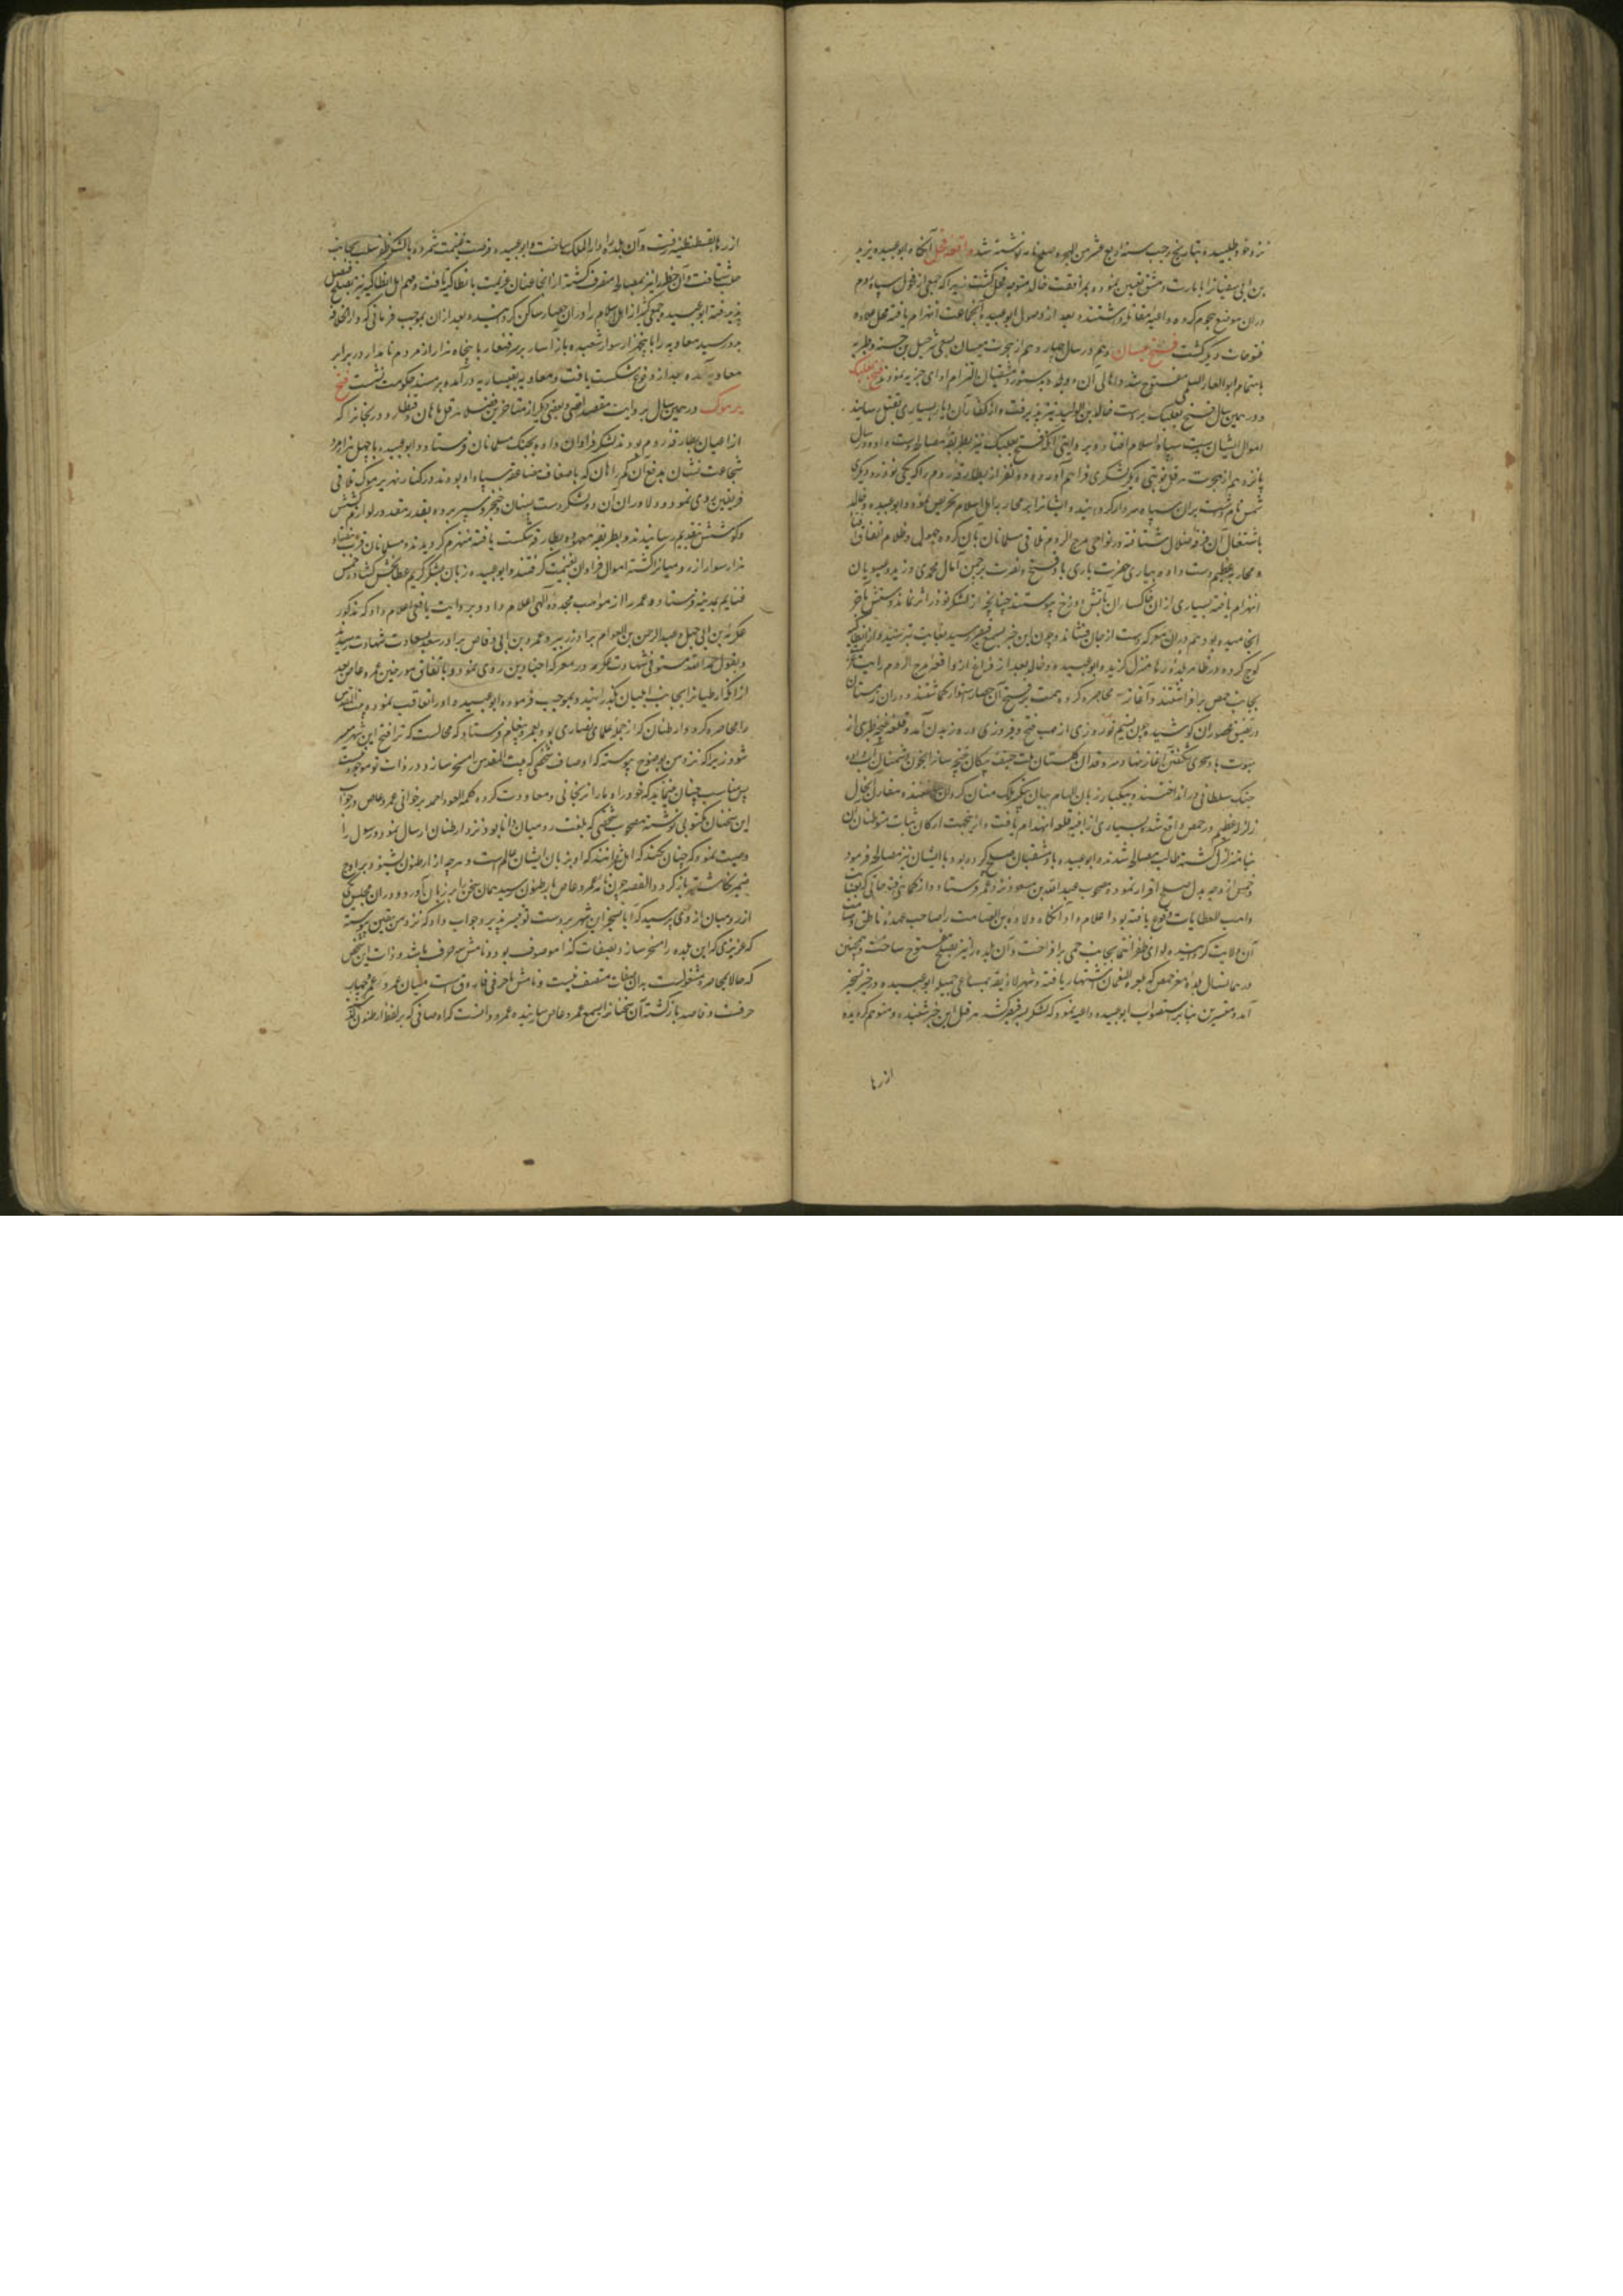 نزد خود طلبیده بتاریخ رجب سنه اربع عشر من الهجره صلح نامه نوشته شد واقعه فحل آنگاه ابوعبیده یزید
بن ابی سفیانرا بامارت دمشق تعیین نموده بمرافقت خالد متوجه فحل گشت زیرا که جمعی از فحول سپاه روم
دران موضع هجوم کرده داعیه مقابله داشتند و بعد از وصول ابوعبیده آنجماعت انهزام یافته فحل علاوه
فتوحات دیگر گشت فتح بیسان و هم در سال چهاردهم از هجرت بیسان بسعی شرحبیل بن حسنه و طبریه
باهتمام ابوالاعور السلمی مفتوح شد و اهالی آن دو بلده بدستور دمشقیان التزام ادای جزیه نمودند فتح بعلبک
و در همین سال فتح بعلبک بردست خالد بن الولید نیز پذیرفت و از کفار آن دیار بسیاری بقتل رسانید
اموال ایشان بدست سپاه اسلام افتاد و بروایتی آنکه فتح بعلبک نیز بطریق مصالحه دست داده و در سال
پانزدهم از هجرت هرقل نوبتی دیگر لشکری فراهم آورده دو نفر از بطارقه روم را که یکی توذر و دیگری
شمس نام داشت بران سپاه سردار گردانید و ایشانرا بر محاربه اهل اسلام تحریص نمود و ابوعبیده و خالد
باشتغال آن فرقه ضلال شتافته در نواحی مرج الروم تلاقی مسلمانان بان گروه جهول و ظلام اتفاق افتاد
و محاربه عظیم دست داده بیاری حضرت باری باد فتح و نصرت بر چمن آمال محمدی وزید و عیسویان
انهزام یافته بسیاری از ان خاکساران بآتش دوزخ پیوستند چنانچه از لشکر توذر اثر نماند و شنش باخر
انجامیده بود هم دران معرکه دست از جان فشاند و چون این خبر بسمع قیصر رسید بغایت بترسید و از انطاکیه
کوچ کرده در ظاهر بلده رها منزل گزید و ابوعبیده و خالد بعد از فراغ از واقعه مرج الروم رایت ظفر
بجانب حمص برافراشتند و آغاز محاصره کرده همت بر فتح آن حصار استوار گماشتند و دران زمستان
در تضییق محصوران کوشیده چون نسیم نوروزی از مهب فتح و فیروزی در وزیدن آمد و قلعه غنچه طری از
هبوت باد سحری شگفتن آغاز نهاد
جنگ سلطانی در انداختند و بیکبار زبان الهام بیان بتکبیر ملک منان گردان ساختند مقارن آنحال
زلزله عظیم در حمص واقع شد بسیاری از ابنیه قلعه انهدام یافت و ازینجهت ارکان ثبات متوطنان آن
بنا متزلزل گشته طالب مصالحه شدند و ابوعبیده با دمشقیان صلح کرده بود با ایشان نیز مصالحه فرمود
و خمس از وجه بدل صلح افراز نموده مصحوب عبدالله بن مسعود نزد عمر فرستاد و از
واهب العطایات وقوع یافته بود اعلام داد آنگاه ولا عباده بن الصامت را صاحب عهده
آن ولایت گردانیده لوای ظفر انتما بجانب حمی برافراخت و آن بلده را نیز بصلح مفتوح ساخت و همچنین
در همانسال بلده معره حمص که بمعرة النعمان اشتهار یافته و شهر لاذقیه بمساعی جمیله ابوعبیده در حیز تسخیر
آمد و قنسرین بنابر استصواب ابوعبیده داعیه نمود که لشکر بر قیصر کشد هرقل این خبر شنیده و متوهم گردیده
از رها
از رها بقسطنطنیه رفت و آن بلده را دارالملک ساخت و ابوعبیده فرصت غنیمت شمرده با لشکر ظفر سلب بجانب
حلب شتافت و آن خطه را نیز بمصالحه متصرف گشته از آنجا عنان عزیمت بانطاکیه تافت و مهم اهل انطاکیه نیز بصلح فیصل
پذیرفته ابوعبیده جمعی کثیر از اهل اسلام را دران حصار ساکن گردانیده بعد از ان بموجب فرمانی که از دارالخلافه
بدو رسید معاویه را با پنجهزار سوار شعبده باز آسار بر سر فنطار با پنجاه هزار از مردم نامدار در برابر
معاویه آمده بعد از وقوع شکست یافت و معاویه بقیساریه درآمده بر مسند حکومت نشست فتح
یرموک در همین سال بروایت مقصد اقصی و بعضی دیگر از متاخرین فضلا هرقل ماهان و قنطار و دریجانرا که
از اعیان بطارقه روم بودند لشکر فراوان داده بجنگ مسلمانان فرستاد و ابوعبیده با چهل هزار مرد
شجاعت نشان بدفع آن گمراهان که باضعاف مضاعفه سپاه او بودند در کنار نهر یرموک تلاقی
فریقین روی نمود و دلاوران آن دو لشکر دست بسنان و خنجر و سپر برده بقدر مقدور لوازم کشش
و کوشش بتقدیم رسانیدند و بطریقه معهوده بطارقه شکست یافته منهزم گردیدند و مسلمانان قرب هفتاد
هزار سوار از رومیانرا کشته اموال فراوان بغنیمت گرفتند و ابوعبیده زبان بشکر کریم عطابخش گشاده خمس
غنایم بمدینه فرستاد و عمر را از مواهب مجدده الهی اعلام داد و بروایت یافعی اعلام داد که مذکور
عکرمه بن ابی جهل و عبدالرحمن بن العوام برادر زبیر و عمرو بن ابی وقاص برادر سعد بسعادت شهادت رسیدند
و بقول حمدالله مستوفی شهادت عکرمه در معرکه اجنادین روی نمود و باتفاق مورخین عمرو عاص بعد
از انکه ارطیانرا بجانب ایلیان گذرانید و بموجب فرموده ابوعبیده او را تعاقب نموده بیت المقدس
را محاصره کرد و ارطنان که از جمله علمای نصاری بود بعمرو پیغام فرستاد که محالست که ترا فتح این شهر میسر
شود زیرا که نزد من بوضوح پیوسته که اوصاف شخصی که بیت المقدس را مسخر سازد در ذات تو موجود نیست
پس مناسب چنان مینماید که خود را و ما را نرنجانی و معاودت کرده کلمه العود احمد برخوانی عمرو عاص در جواب
این سخنان مکتوبی نوشته مصحوب شخصی که بلغت رومیان دانا بود نزد ارطنان ارسال نمود و رسول را
وصیت نمود که چنان نکند که اهل روم دانند که او بزبان ایشان عالم است و هرچه از ارطنون بشنود بر لوح
ضمیر نگاشته باز گردد القصه چون نامه عمرو عاص بارطنون رسید همان سخن را بر زبان آورد و دران مجلس یکی
از رومیان از وی پرسید که آیا تسخیر این شهر بر دست که تیسیر پذیرد جواب داد که نزد من بیقین پیوسته
که عزیزی که این بلده را مسخر سازد بصفات کذا موصوف بود و نامش سه حرف باشد و ذات این شخص
که حالا بمحاصره مشغولست بدان صفات متصف نیست و نامش
حرفست و قاصد بازگشته آن سخنانرا بسمع عمرو عاص رسانیده عمرو دانست که اوصافی که بر لفظ ارطنون